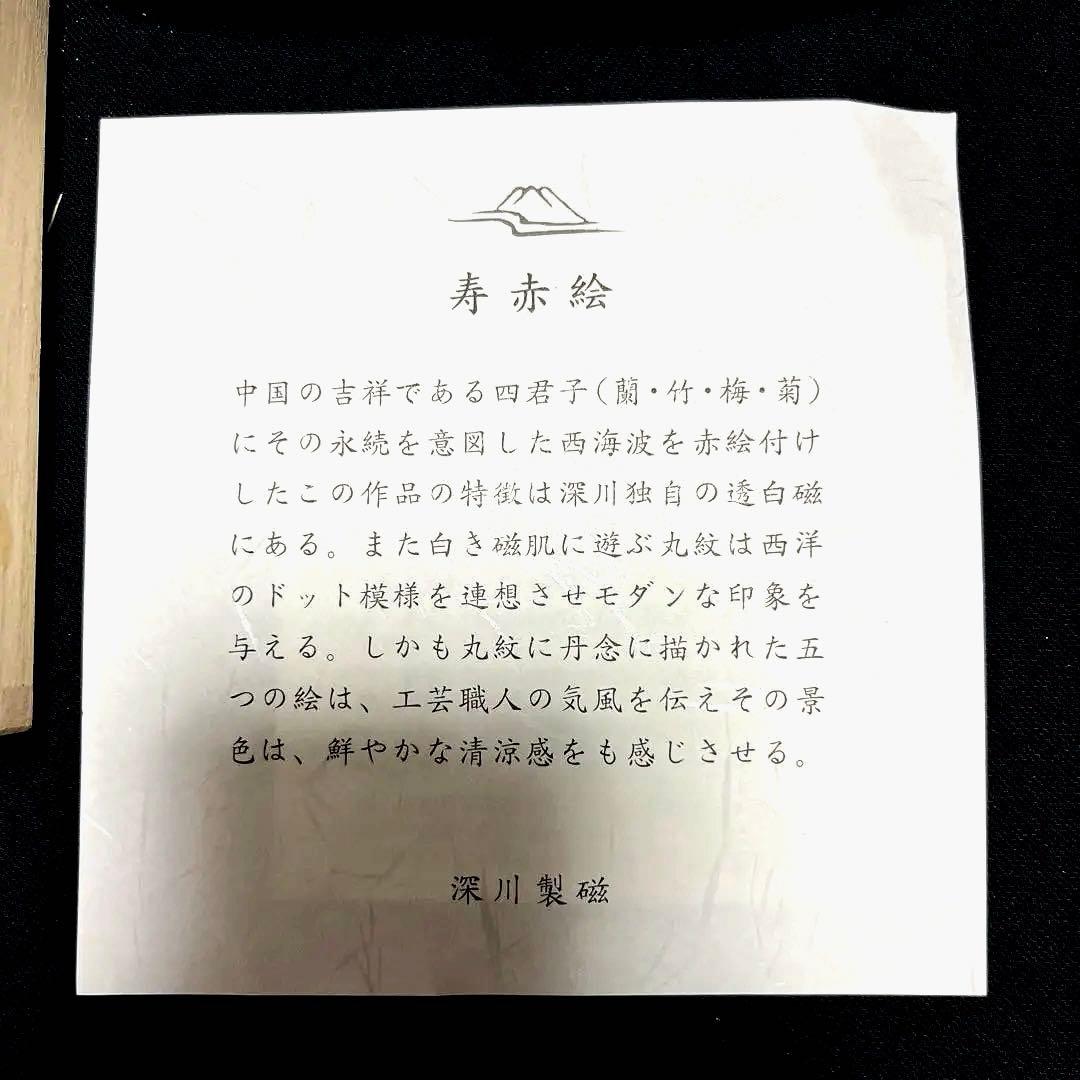 寿赤絵
中国の吉祥である四君子（蘭・竹・梅・菊）
にその永続を意図した西海波を赤絵付け
したこの作品の特徴は深川独自の透白磁
にある。また白き磁肌に遊ぶ丸紋は西洋
のドット模様を連想させモダンな印象を
与える。しかも丸紋に丹念に描かれた五
つの絵は、工芸職人の気風を伝えその景
色は、鮮やかな清涼感をも感じさせる。
深川製磁